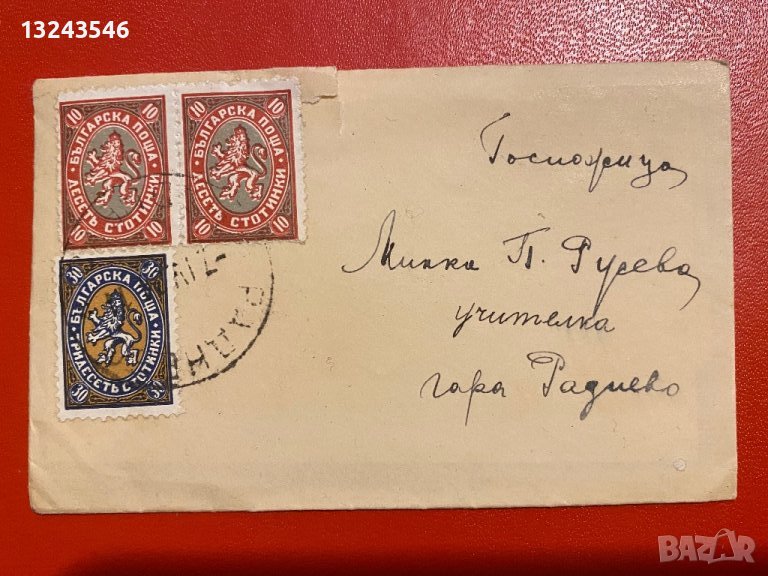 13243546
10 10
БЪЛГАРСКА ПОША
ДЕСЕТЬ СТОТИНКИ
10 10
10 10
БЪЛГАРСКА ПОША
ДЕСЕТЬ СТОТИНКИ
10 10
30 30
БЪЛГАРСКА ПОША
ТРИДЕСЕТЬ СТОТИНКИ
30 30
Госпожица
Минка П. Русева
учителка
гара Радиево
BAZAR